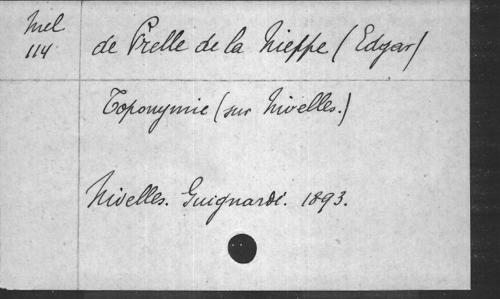 Mel
114
de Prelle de la Nieppe (Edgar)
Toponymie (sur Nivelles.)
Nivelles. Guignardé. 1893.